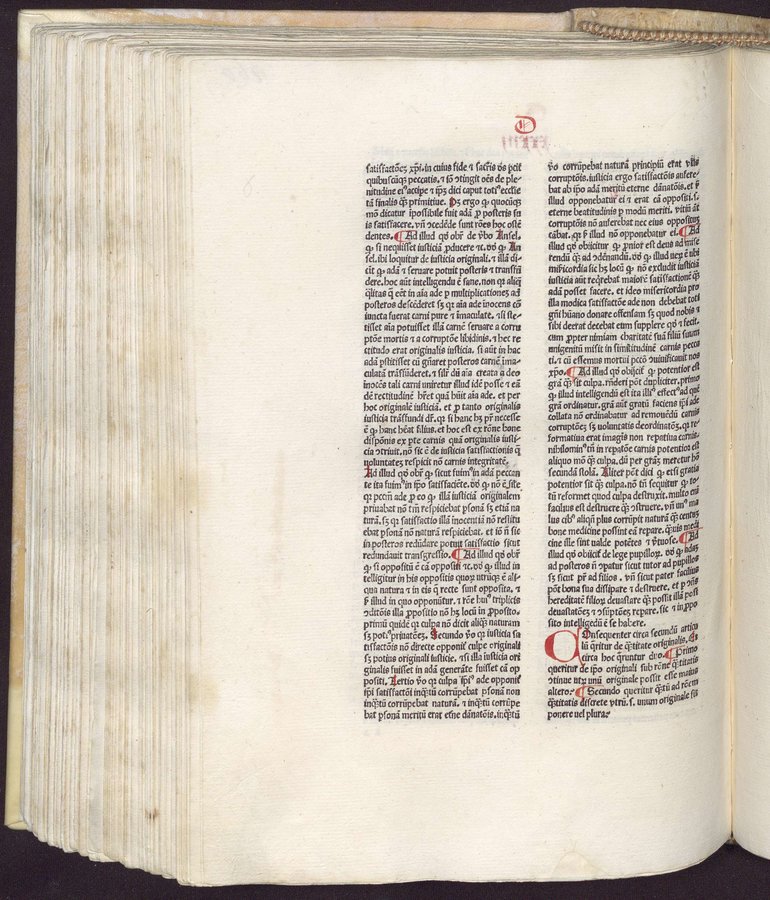 D
satisfactōeȝ xp̄i. in cuius fide ⁊ sac̄ris ōs p̄cit
quibuscūqȝ peccatis. ⁊ iō ↄtingit oēs de ple-
nitudine ei⁹ accipe ⁊ ip̄ȝ dici caput toti⁹ eccl̄ie
tā
ergo ꝙ quocūqȝ
mō dicatur īpossibile fuit adā ꝓ posteris su
is satisfacere. vn̄
dentes. Ad illud qd̓ obr̄ de v̓bo Ansel.
ꝙ si nequisset iusticiā ꝓducere ⁊c. vō ꝙ An
sel. ibi loquitur de iusticia originali. ⁊ illā di-
cit ꝙ adā ⁊ seruare potuit posteris ⁊ transfū
dere. hoc aūt intelligendū ē sane. non ꝙ aliq̄
q̄litas ꝙ eēt in aīa ade ꝑ multiplicationeȝ ad
posteros descēderet sȝ qꝛ aīa ade īnocens cō
iuncta fuerat carni pure ⁊ īmaculate. ⁊ si ste-
tisset aīa potuisset illā carnē seruare a corru
ptōe mortis ⁊ a corruptōe libidinis. ⁊ hec re
ctitudo erat originalis iusticia. si aūt in hac
adā p̄stitisset cū gn̄aret posteros carnē ima-
culatā trāsfūderet. ⁊ sil̄r dū aīa creata a deo
īnocēs tali carni uniretur illud idē posse ⁊ eā
dē rectitudinē hr̄et quā hūit aīa ade. et per
hoc originalē iusticiā. et ꝓ tanto originalis
iusticia trāsfundi dr̄. qꝛ si hanc hȝ pr̄ necesse
ē ꝙ hanc hēat filius. et hoc est ex rōne bone
dispōnis ex pte carnis quā originalis iusti-
cia ↄtriuit. nō sic ē de iusticia satisfactionis q̄
voluntateȝ respicit nō carnis integritatē.
Ad illud qd̓ obr̄ ꝙ sicut fuim⁹ in adā peccan
te ita fuim⁹ in xp̄o satisfaciēte. vō ꝙ nō ē sil̄e
qꝛ pccm̄ ade ꝓ eo ꝙ illā iusticiā originalem
priuabat nō tm̄ respiciebat ꝑsonā sȝ etiā na
turā. sȝ qꝛ satisfactio illā inocentiā nō restitu
ebat ꝑsonā nō naturā respiciebat. et iō nō sic
in posteros redūdare potuit satisfactio sicut
redundauit transgressio. Ad illud qd̓ obr̄
ꝙ si oppositū ē cā oppositi ⁊c. vō ꝙ illud in
telligitur in his oppositis quoꝝ utrūqȝ ē ali-
qua natura ⁊ in eis q̄ recte sunt opposita. ⁊
ꝓ illud in quo opponūtur. ⁊ rōne hui⁹ triplicis
ↄditōnis illa ꝓpositio nō hȝ locū in ꝓposito.
primū quidē qꝛ culpa nō dicit aliq̄ naturam
sȝ poti⁹ priuatōeȝ. Secundo v̄o qꝛ iusticia sa
tisfactōis nō directe opponit̄ culpe originali
sȝ potius originali iusticie. ⁊ si illa iusticia ori
ginalis fuisset in adā generāte fuisset cā op
positi. Tertio v̄o qꝛ culpa ip̄i⁹ ade opponit̄
ip̄i satisfactōi inq̄tū corrūpebat ꝑsonā non
inq̄tū corrūpebat naturā. ⁊ inq̄tū corrūpe
bat ꝑsonā meritū erat et̄ne dānatōis. inq̄tū
v̄o corrūpebat naturā principiū erat vl̄is
corruptōis. iusticia ergo satisfactōis aufere-
bat ab ip̄o adā meritū eterne dānatōis. et ꝓ
illud opponebatur ei ⁊ erat cā oppositi. s.
eterne beatitudinis ꝑ modū meriti. vitiū āt
corruptōis nō auferebat nec eius oppositū
cābat. qꝛ ꝓ illud nō opponebatur ei. Ad
illud qd̓ obijcitur ꝙ pronior est deus ad mise
rendū qȝ ad ↄdēnandū. vō ꝙ illud uerū ē ubi
misericordia sic hȝ locū ꝙ nō excludit iusticiā
iusticia aūt reqrebat maiorē satisfactionē qȝ
adā posset facere. et ideo misericordia pro
illa modica satisfactōe ade non debebat toti
gn̄i hūano donare offensam sȝ quod nobis ⁊
sibi deerat decebat eum supplere qd̓ ⁊ fecit.
cum ꝓpter nimiam charitatē suā filiū suum
unigenitū misit in similitudinē carnis pecca
ti. ⁊ cū essemus mortui pccō ↄuiuificauit nos
xp̄o. Ad illud qd̓ obijcit̄ ꝙ potentior est
grā qȝ sit culpa. rn̄deri pōt dupliciter. primo
ꝙ illud intelligendū est ita illi⁹ effect⁹ ad quē
grā ordinatur. grā aūt gratū faciens ip̄i ade
collata nō ordinabatur ad remouēdū carnis
corruptōeȝ sȝ voluntatis deordinatōȝ. qꝛ re-
formatiua erat imagīs non repatiua carnis.
nihilomin⁹ tn̄ in repatōe carnis potentior est
aliquo mō qȝ culpa. dū per grāȝ meretur hō
secundā stolā. Aliter pōt dici ꝙ etsi gratia
potentior sit qȝ culpa. nō tn̄ sequitur ꝙ to-
tū reformet quod culpa destruxit. multo em̄
facilius est destruere qȝ ↄstruere. vn̄ un⁹ ma
lus cib⁹ aliqn̄ plus corrūpit naturā qȝ centuȝ
bone medicine possint eā repare. quis medi
cine ille sint ualde potētes ⁊ v̓tuose. Ad
illud qd̓ obijcit̄ de lege pupilloꝝ. vō ꝙ adas
ad posteros nō ↄpatur sicut tutor ad pupillos
sȝ sicut pr̄ ad filios. vn̄ sicut pater facilius
pōt bona sua dissipare ⁊ destruere. et ꝑ ↄn̄s
hereditatē filioꝝ deuastare qȝ possit illā post
deuastatōeȝ ⁊ ↄsūptōeȝ repare. sic ⁊ in ꝓpo
sito intelligēdū ē se habere.
COnsequenter circa secundū articu
lū q̄ritur de q̄titate originalis. Et
circa hoc q̄runtur duo. Primo
queritur de ip̄o originali sub rōne q̄titatis
ↄtinue utꝝ unū originale possit esse maius
altero. Secundo queritur q̄tū ad rōem
q̄titatis discrete vtrū. s. unum originale sit
ponere vel plura.